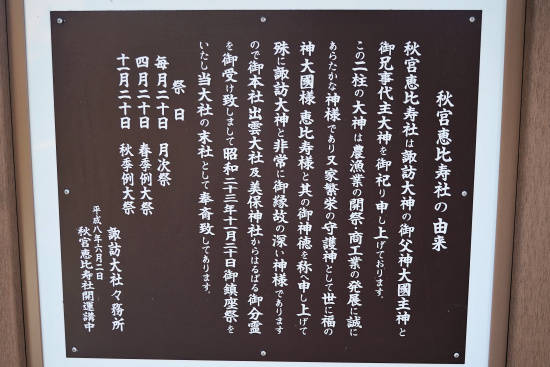 秋宮恵比寿社の由来
秋宮恵比寿社は諏訪大神の御父神大國主神と
御兄事代主大神を御祀り申し上げております。
この二柱の大神は農漁業の開祭・商工業の発展に誠に
あらたかな神様であり又家繁栄の守護神として世に福の
神大國様 恵比寿様と其の御神徳を称へ申し上げて
殊に諏訪大神と非常に御縁故の深い神様であります
ので御本社出雲大社及美保神社からはるばる御分霊
を御受け致しまして昭和二十三年十一月二十日御鎮座祭を
いたし当大社の末社として奉斎致してあります。
祭日
毎月二十日 月次祭
四月二十日 春季例大祭
十一月二十日 秋季例大祭
諏訪大社々務所
平成八年六月二日
秋宮恵比寿社開運講中